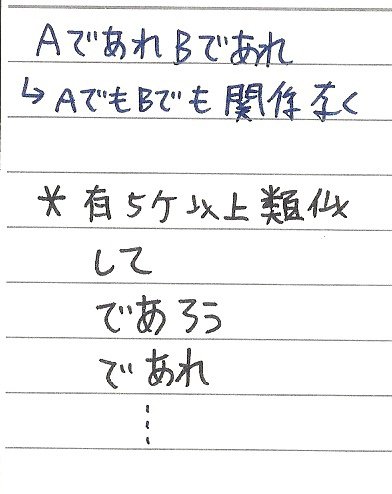 AであれBであれ
↳AでもBでも関係なく
*有5ケ以上類似
して
であろう
であれ
⋮